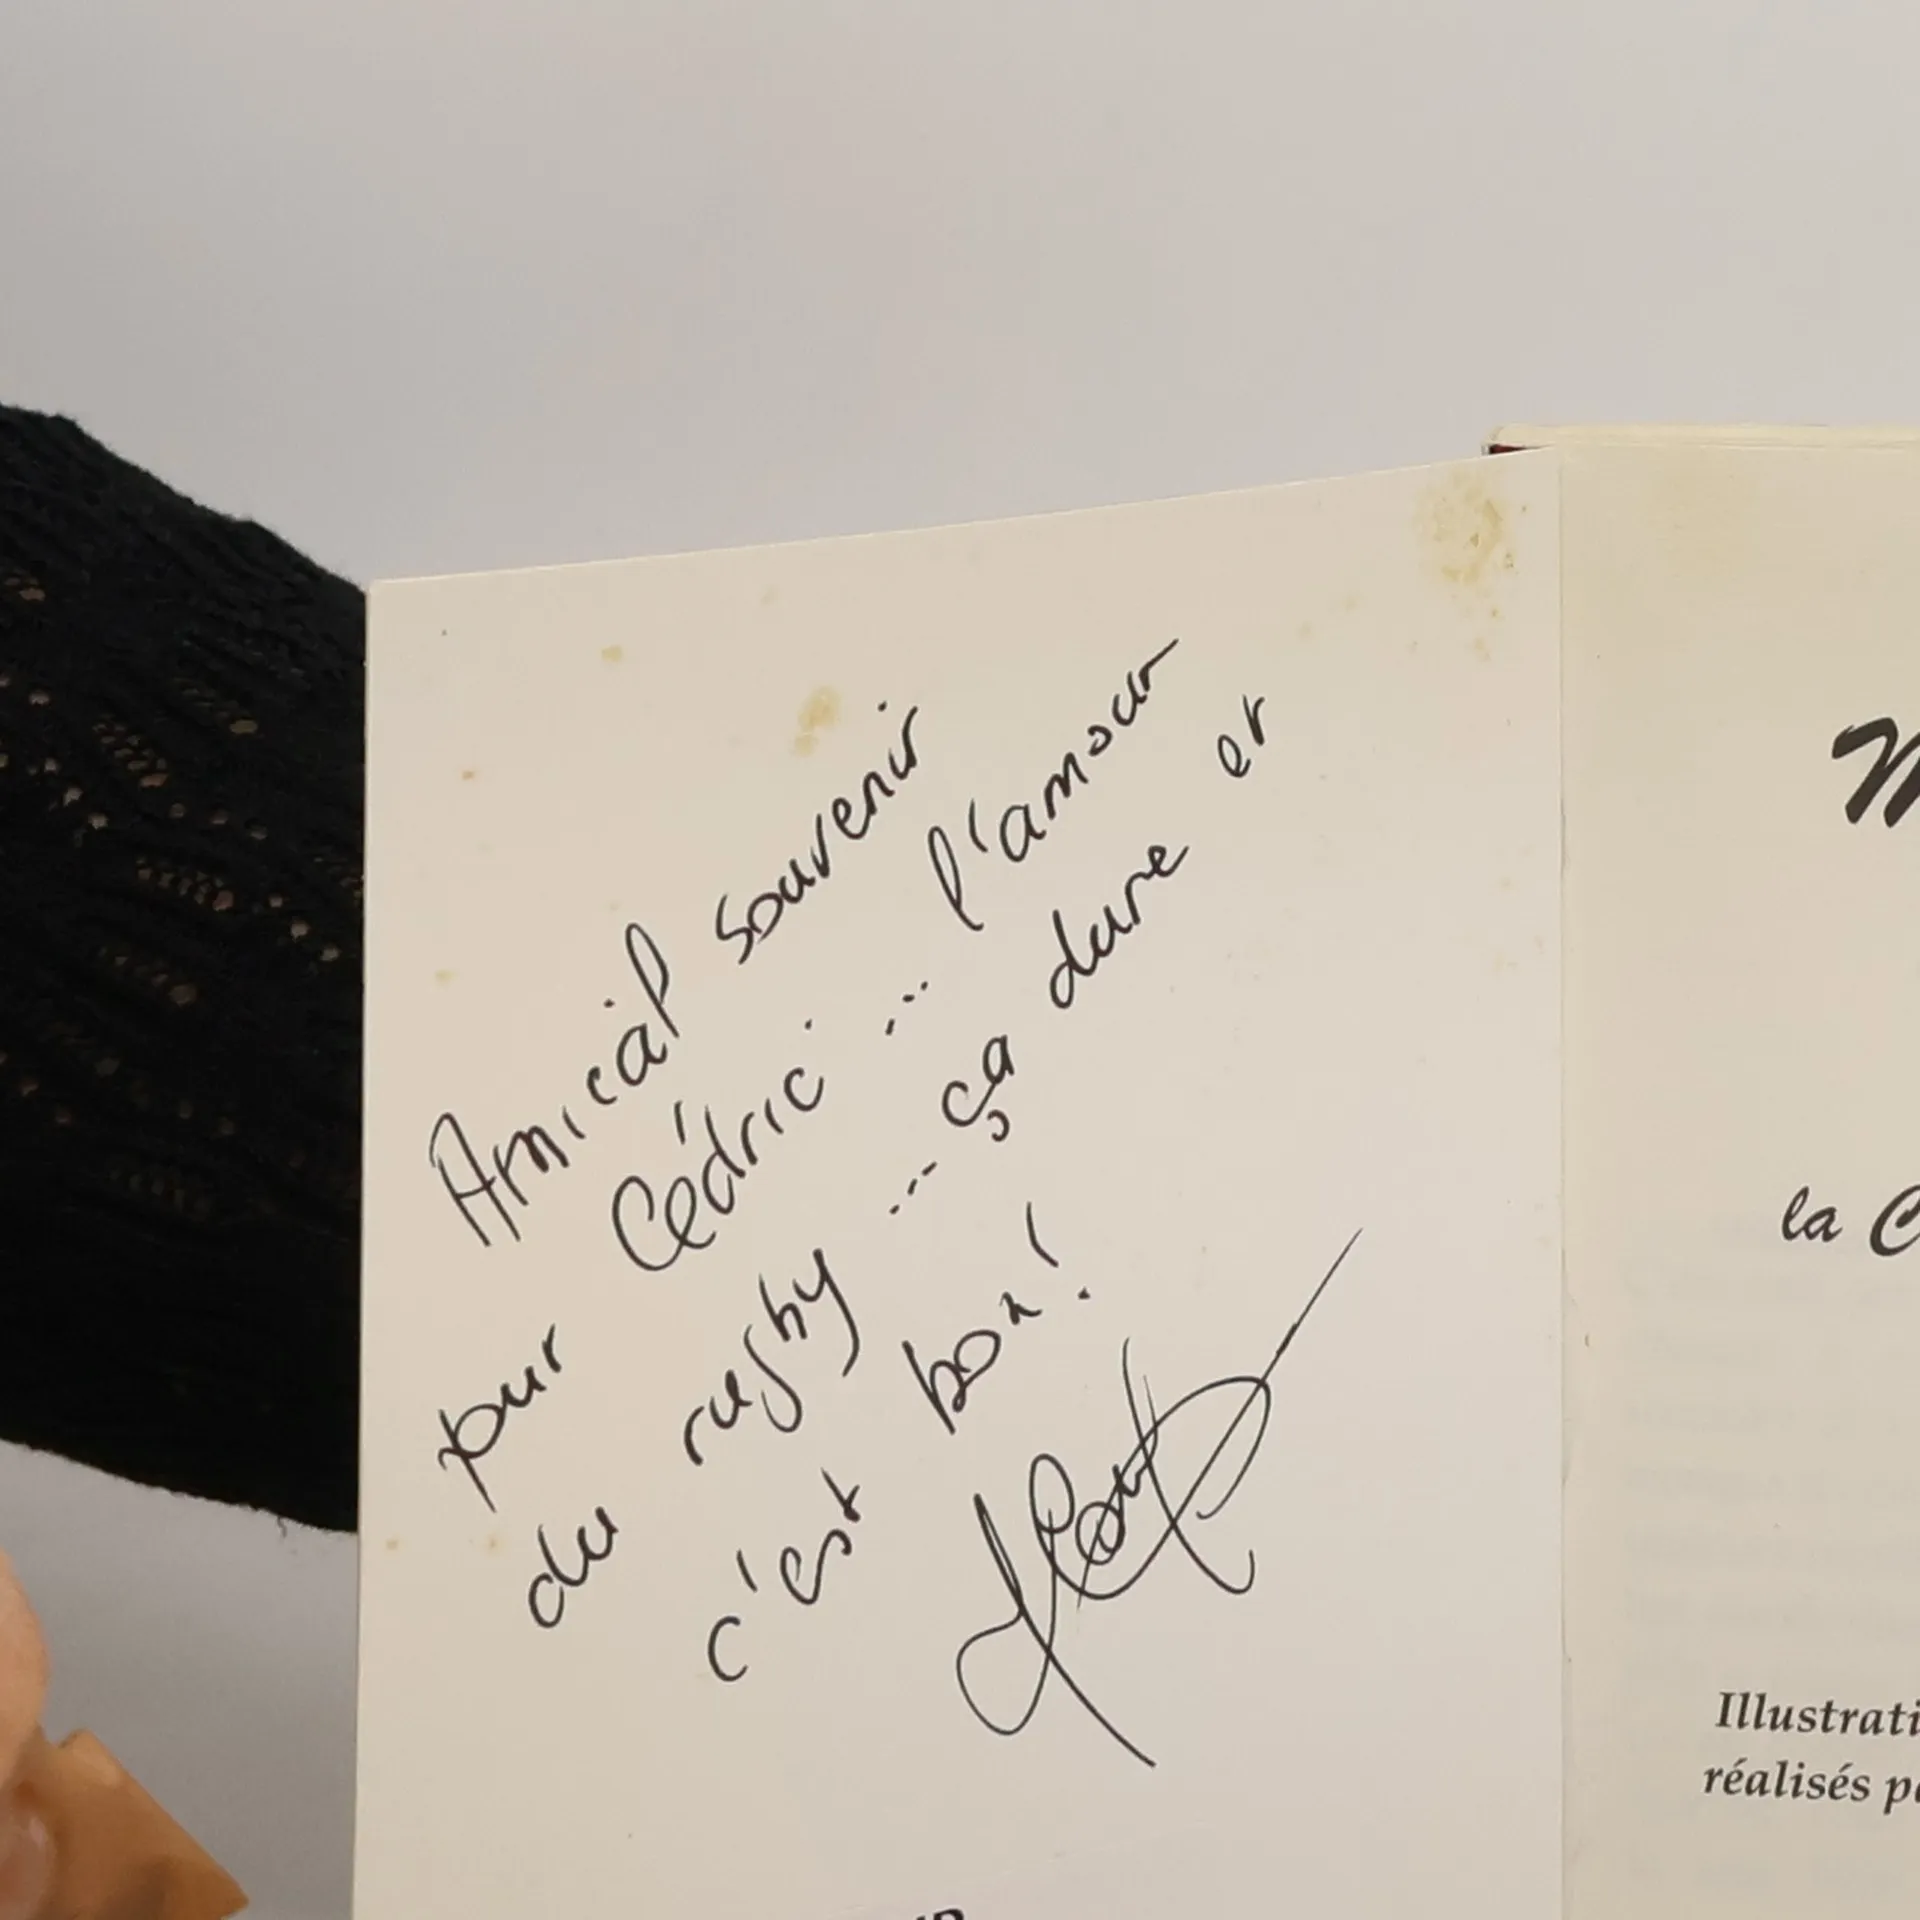 Amical souvenir
pour Cédric ... l'amour
du rugby ... ça dure et
c'est bon!
la
Illustrati
réalisés